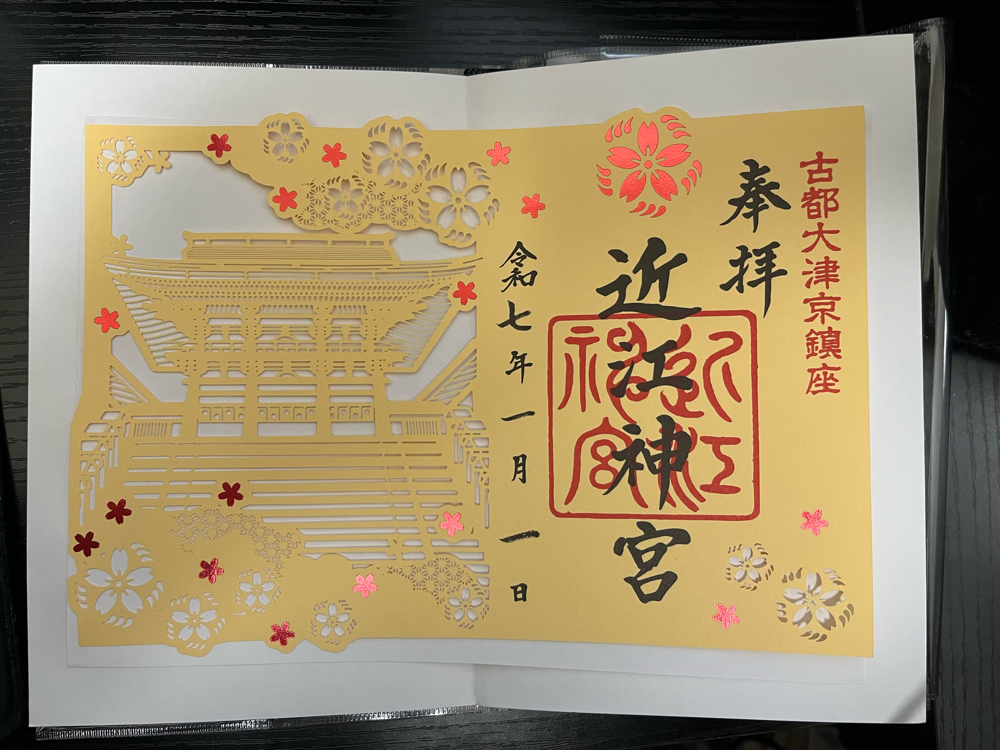 古都大津京鎮座
奉拝
近江神宮
近江神宮
令和七年一月一日